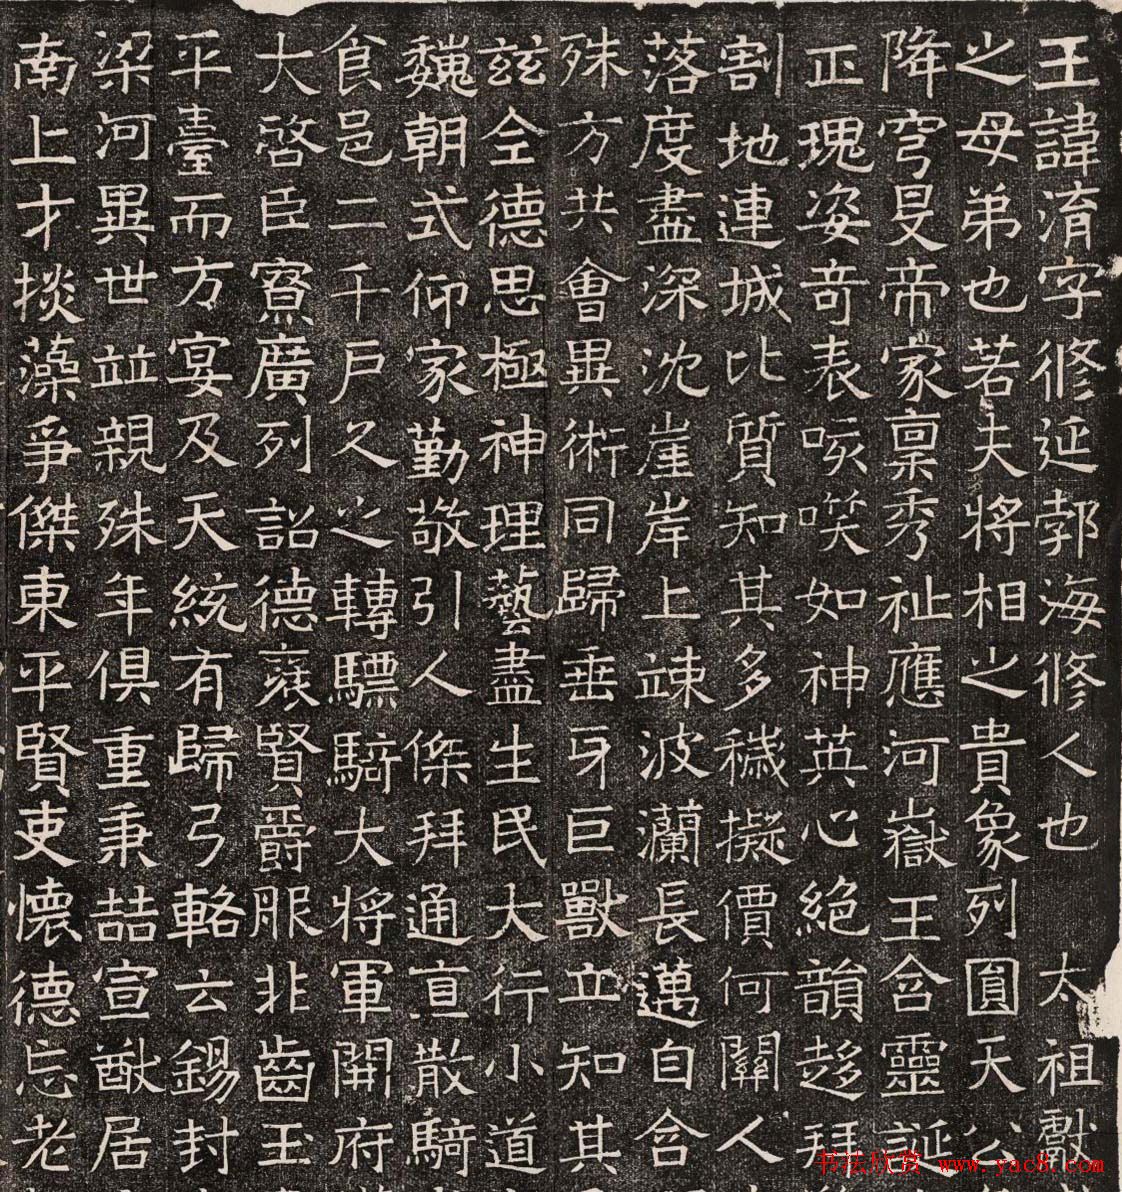 王諱淯字修延郭海修人也　太祖獻
之母弟也若夫將相之貴象列圓天
降穹旻帝家稟秀祉應河嶽王含靈誕
正瑰姿奇表咳笑如神英心絶韻趍拜
割地連城比質知其多穢擬價何關人
落度盡深沈崖岸上竦波瀾長邁自含
殊方共會異術同歸垂牙巨獸立知其
玆仝德思極神理藝盡生民大行小道
魏朝式仰家勤敬引人傑拜通直散騎
食邑二千戶久之轉驃騎大將軍開府
大啓臣寮廣列詔德襃賢爵服非齒玉
平臺而方宴及天統有歸弓輅云錫封
梁河異世並親殊年俱重秉喆宣猷居
南上才掞藻爭傑東平賢吏懷德忘老
书法欣赏 www.yac8.com